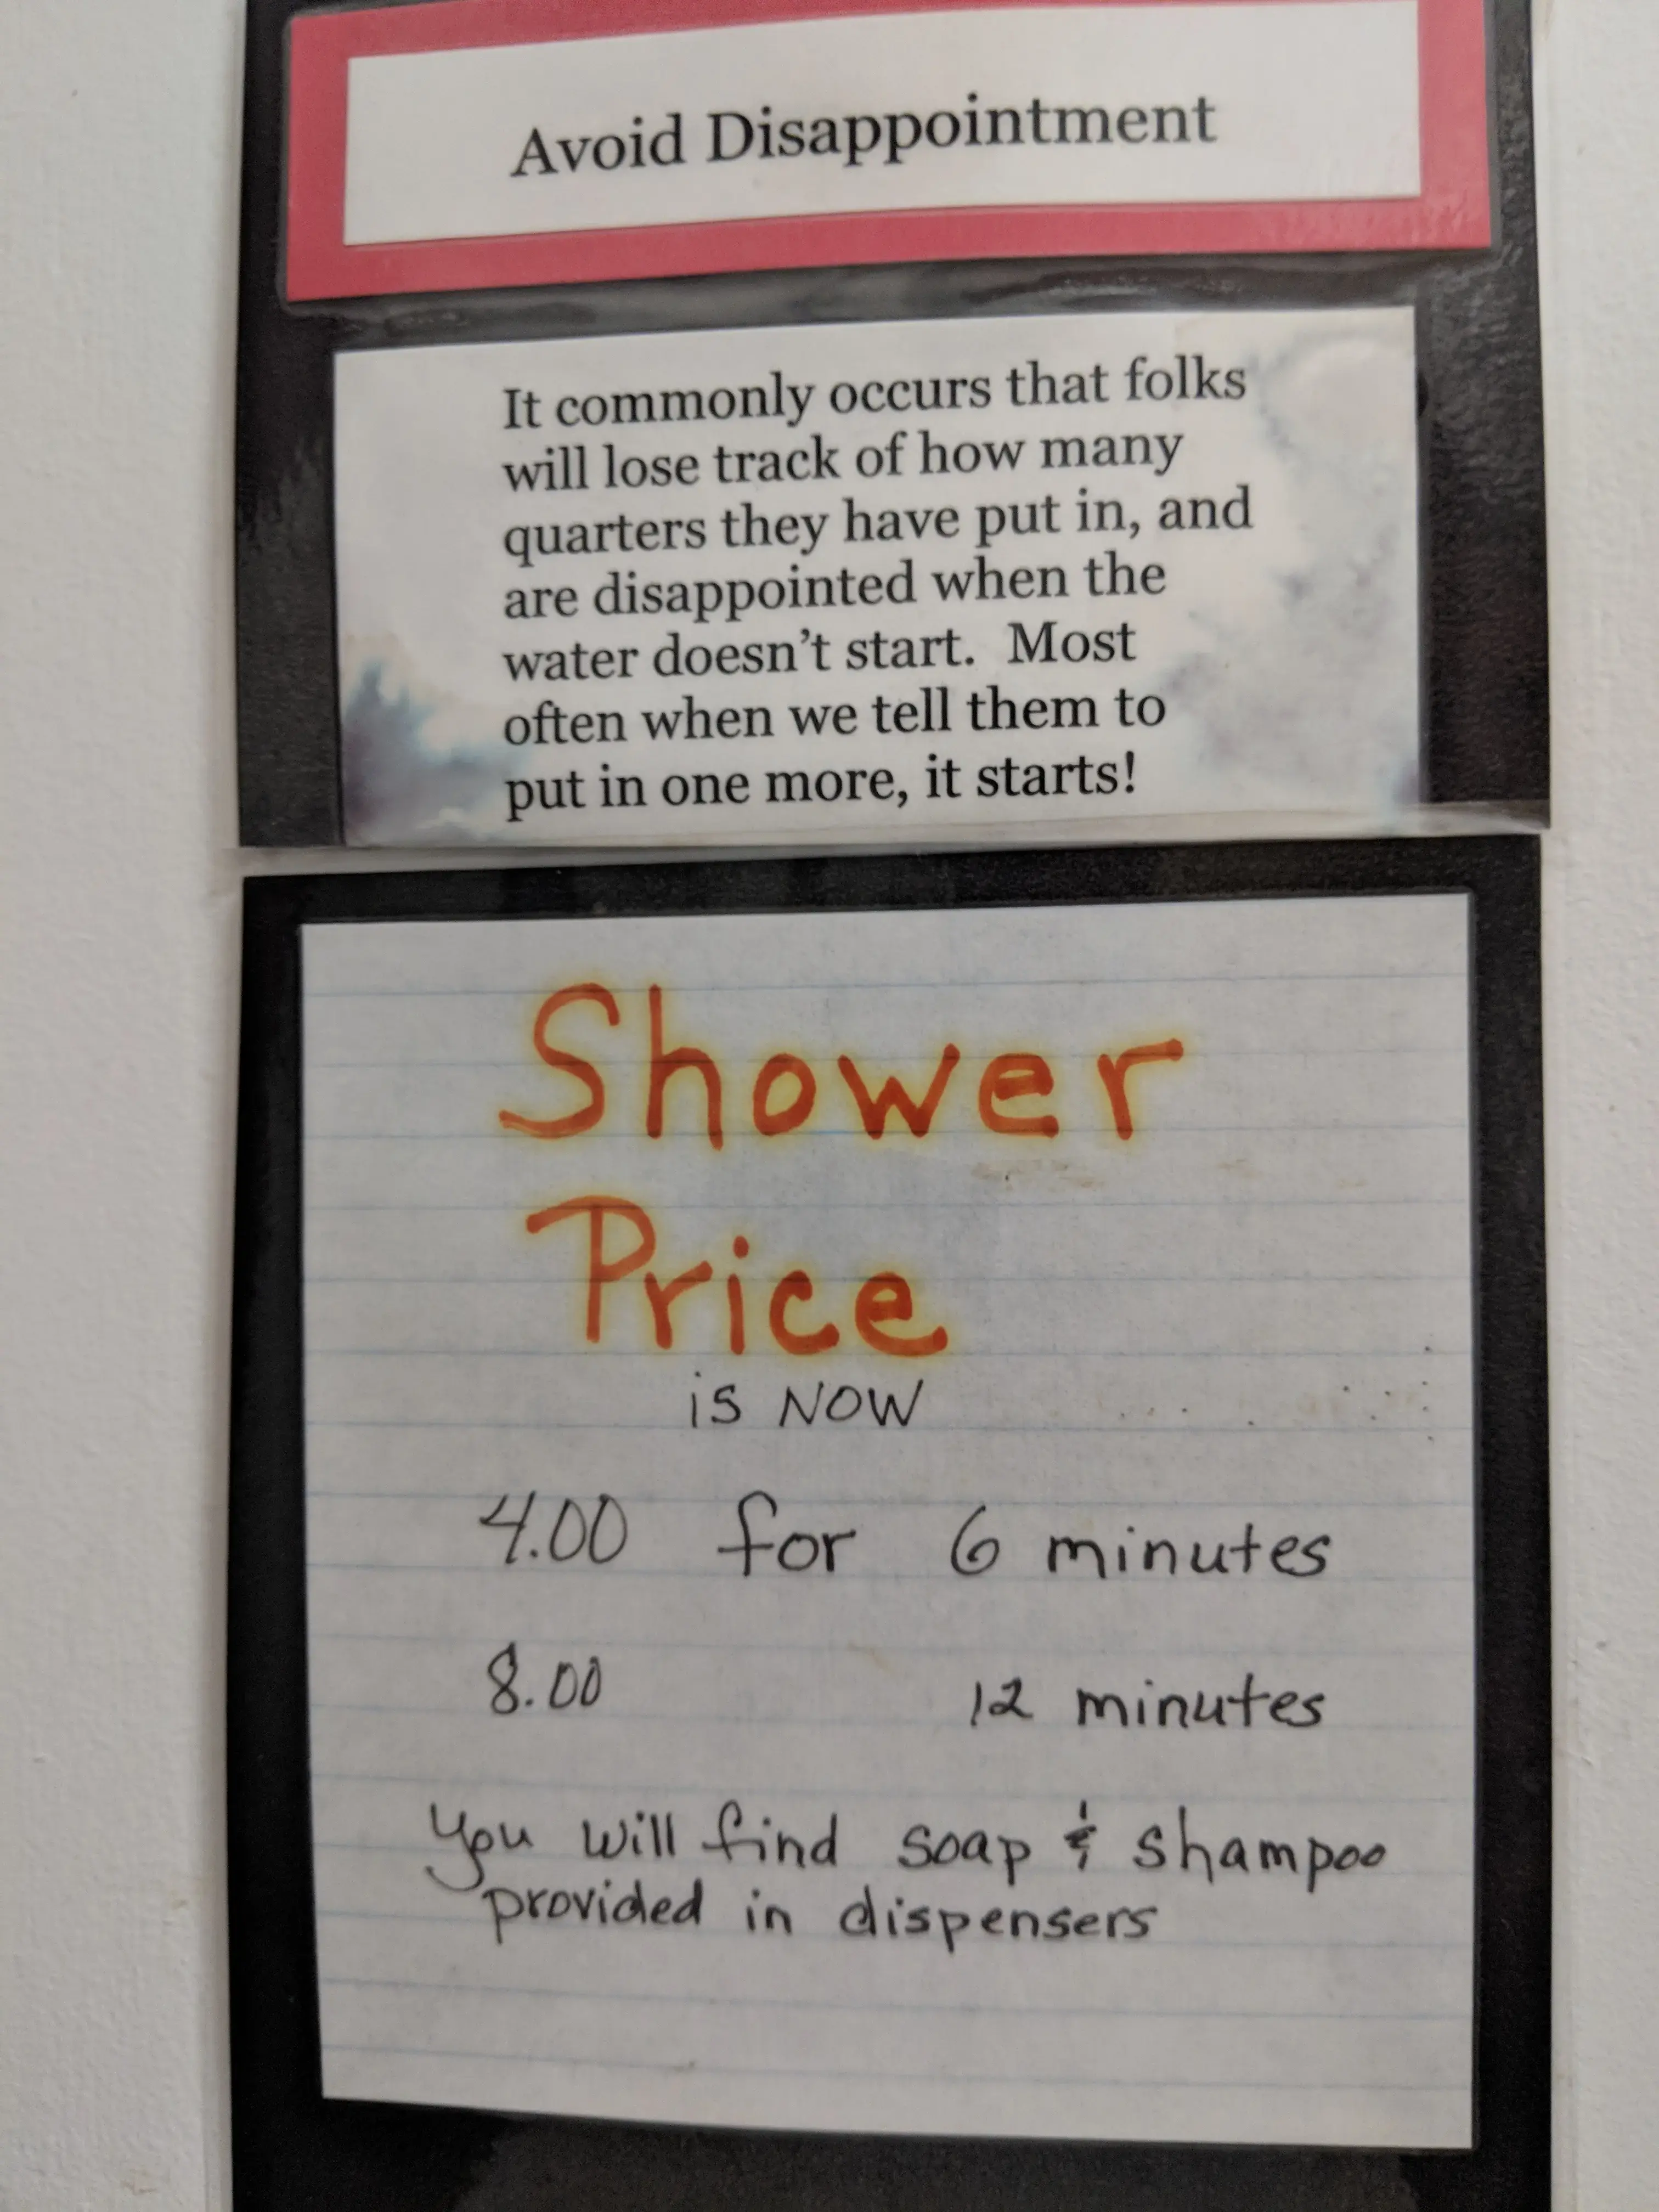 Avoid Disappointment
It commonly occurs that folks
will lose track of how many
quarters they have put in, and
are disappointed when the
water doesn't start.  Most
often when we tell them to
put in one more, it starts!
Shower
Price
is NOW
4.00 for 6 minutes
8.00 12 minutes
You will find soap & shampoo
provided in dispensers